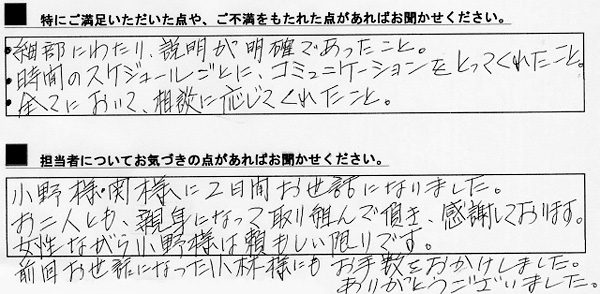 ■ 特にご満足いただいた点や、ご不満をもたれた点があればお聞かせください。
・細部にわたり、説明が明確であったこと。
・時間のスケジュールごとに、コミュニケーションをとってくれたこと。
・全てにおいて、相談に応じてくれたこと。
■ 担当者についてお気づきの点があればお聞かせください。
小野様・関様に2日間お世話になりました。
お二人とも、親身になって取り組んで頂き、感謝しております。
女性ながら小野様は頼もしい限りです。
前回お世話になった小林様にもお手数をおかけしました。
ありがとうございました。